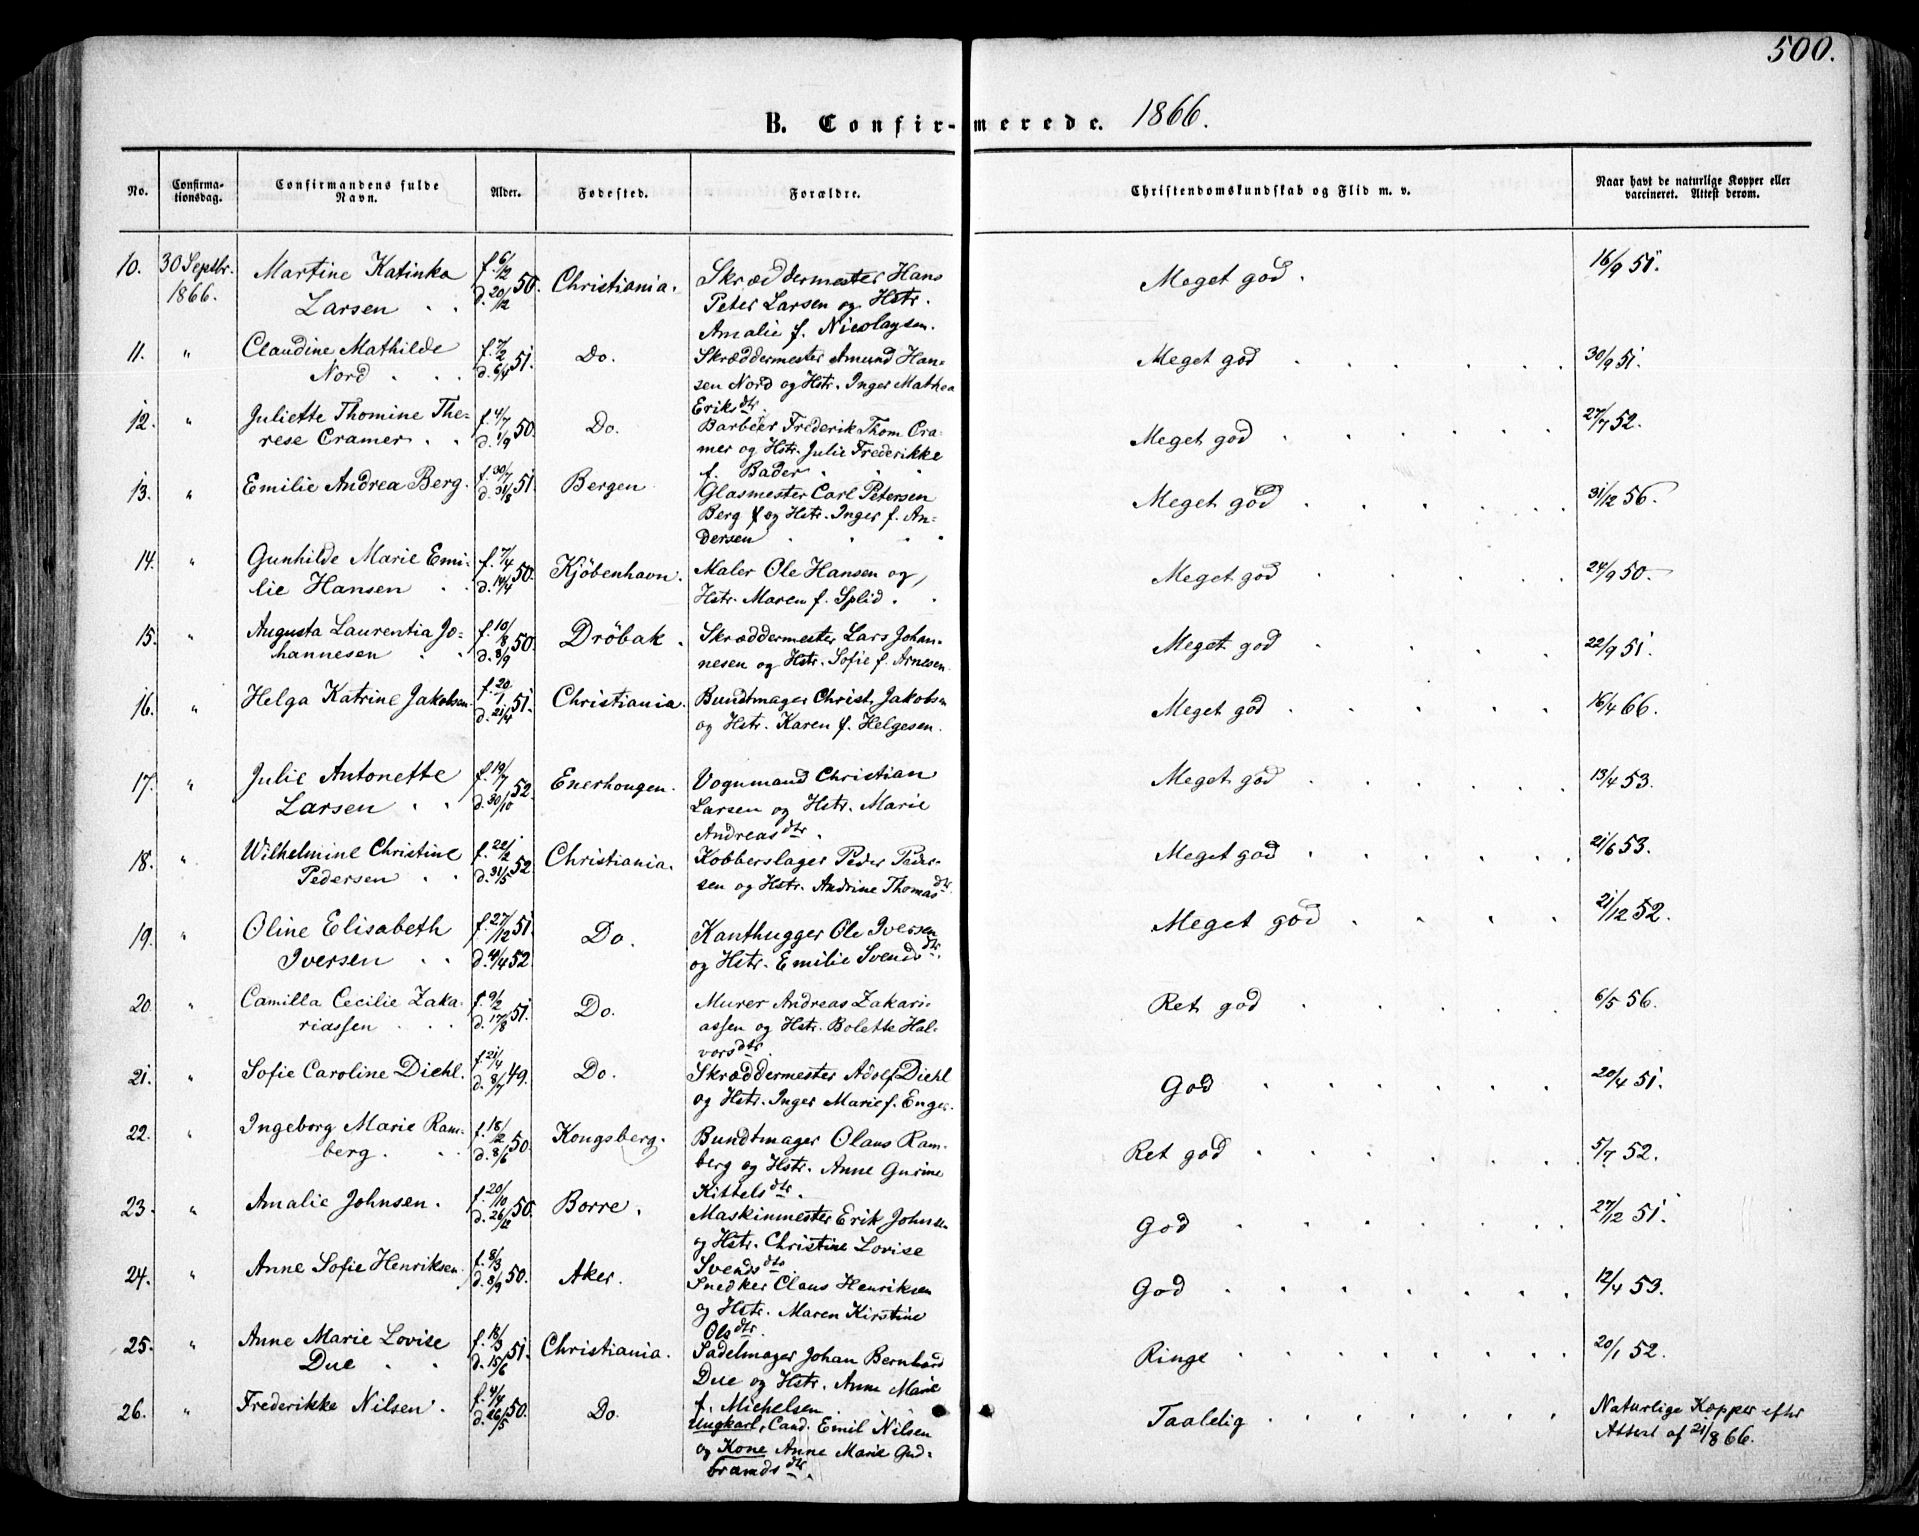 500.
B. Confirmerede. 1866.
No. Confirmationsdag. Confirmandens fulde Navn. Alder. Fødested. Forældre. Christendomskundskab og Flid m. v. Naar havt de naturlige Kopper eller vaccineret. Attest derom.
10. 30 Septbr. Martine Katinka f. 6/12 50. Christiania. Skræddermester Hans Meget god. 16/9 51.
1866. Larsen d. 20/12 Peter Larsen og Hstr.
Amalie f. Nicolaysen.
11. " Claudine Mathilde f. 7/2 51. Do. Skræddermester Amund Han- Meget god 30/9 51.
Nord d. 6/4 sen Nord og Hstr. Inger Mathea
Eriksdtr.
12. " Juliette Thomine The- f. 4/7 50. Do. Barbeer Frederik Thom Cra- Meget god 27/7 52.
rese Cramer d. 1/9 mer og Hstr. Julie Frederikke
f. Bader
13. " Emilie Andrea Berg. f. 30/7 51. Bergen Glasmester Carl Petersen Meget god 31/12 56.
d. 31/8 Berg og Hstr. Inger f. An-
dersen
14. " Gunhilde Marie Emi- f. 7/4 50. Kjöbenhavn. Maler Ole Hansen og Meget god 24/9 50.
lie Hansen d. 14/4 Hstr. Maren f. Splid.
15. " Augusta Laurentia Jo- f. 10/8 50. Dröbak. Skræddermester Lars Johan- Meget god 22/9 51.
hannesen d. 8/9 nesen og Hstr. Sofie f. Arnesen.
16. " Helga Katrine Jakobsen f. 20/1 51. Christiania. Bundtmager Christ. Jakobsn Meget god 16/4 66.
d. 21/4 og Hstr. Karen f. Helgesen.
17. " Julie Antonette f. 19/7 52. Enerhougen. Vognmand Christian Meget god 13/4 53.
Larsen d. 30/10 Larsen og Hstr. Marie
Andreasdtr.
18. " Wilhelmine Christine f. 22/2 52 Christiania. Kobberslager Peder Peder- Meget god 21/6 53.
Pedersen d. 31/5 sen og Hstr. Andrine Thomasdtr.
19. " Oline Elisabeth f. 27/12 51. Do. Kanthugger Ole Iversen Meget god 21/12 52.
Iversen d. 4/4 52. og Hstr. Emilie Svendsdtr.
20. " Camilla Cecilie Zaka- f. 9/2 51. Do. Murer Andreas Zakari- Ret god 6/5 56.
riassen d. 17/8 assen og Hstr. Bolette Hal-
vorsdtr.
21. " Sofie Caroline Diehl. f. 21/4 49. Do. Skræddermester Adolf Diehl God 20/4 51.
d. 8/7 og Hstr. Inger Marie f. Enger.
22. " Ingeborg Marie Ram- f. 18/2 50. Kongsberg. Bundtmager Olaus Ram- Ret god 5/7 52.
berg. d. 8/6 berg og Hstr. Anne Gurine
Kittelsdtr.
23. " Amalie Johnsen. f. 20/10 50. Borre. Maskinmester Erik Johnsn God 27/12 51.
d. 26/12 og Hstr. Christine Lovise
Svendsdtr.
24. " Anne Sofie Henriksen. f. 8/3 50. Aker. Snedker Claus Henriksen God 12/4 53.
d. 8/9 og Hstr. Maren Kirstine
Olsdtr.
25. " Anne Marie Lovise f. 18/3 51. Christiania. Sadelmager Johan Bernhard Ringe 20/1 52.
Due d. 15/6 Due og Hstr. Anne Marie
f. Michelsen
26. " Frederikke Nilsen. f. 4/4 50. Do. Ungkarl, Cand. Emil Nilsen Taalelig Naturlige Kopper efter
d. 26/5 og Kone Anne Marie Gud- Attest af 21/8 66.
brandsdtr.